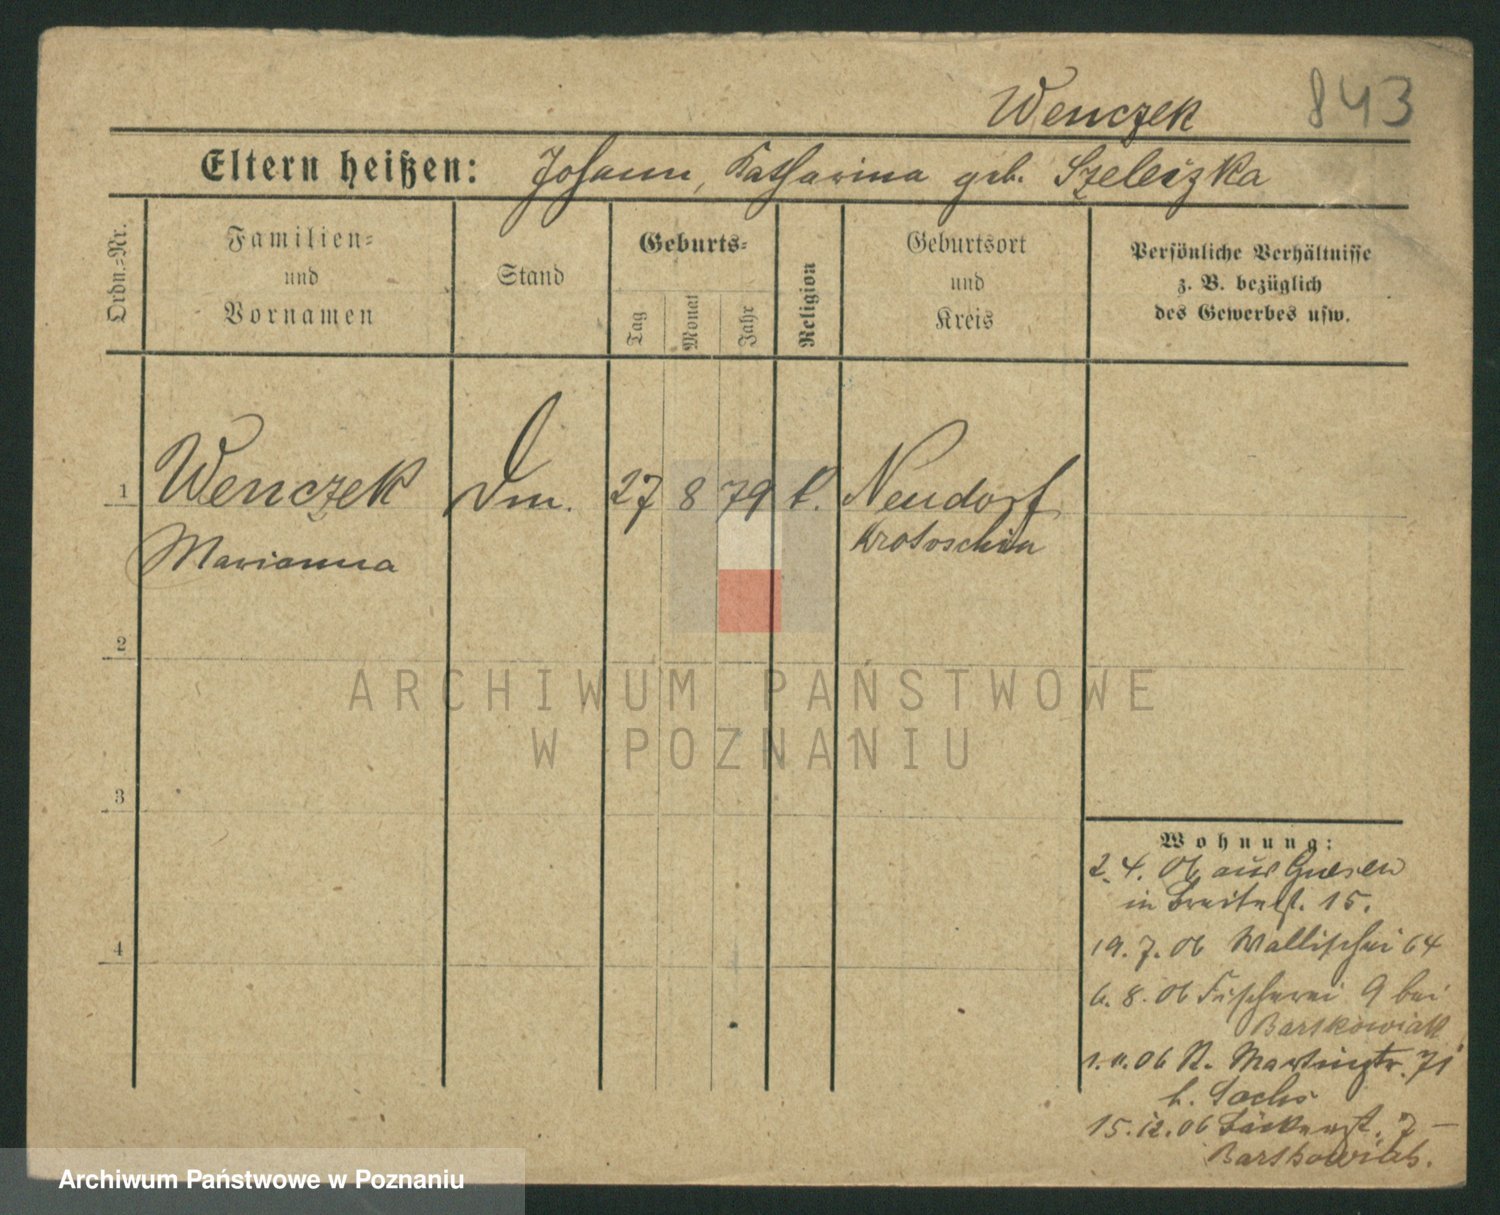 Wenczek 843
Eltern heißen: Johann, Katharina geb. Szeleszka
Ordn.-Nr.
Familien-
und
Vornamen
Stand
Geburts-
Tag
Monat
Jahr
Religion
Geburtsort
und
Kreis
Persönliche Verhältnisse
z. B. bezüglich
des Gewerbes usw.
1 Wenczek Dm. 27 8 79 k. Neudorf
Marianna Krotoschin
2
3
4
Wohnung:
2. 4. 06 aus Gnesen
in Breitest. 15.
19. 7. 06 Wallischei 64
6. 8. 06 Fischerei 9 bei
Bartkowiak
1.11.06 St. Martinstr. 71
b. Sachs
15.12.06 Bäckerst. 7 –
Bartkowiak.
ARCHIWUM PAŃSTWOWE
W POZNANIU
Archiwum Państwowe w Poznaniu